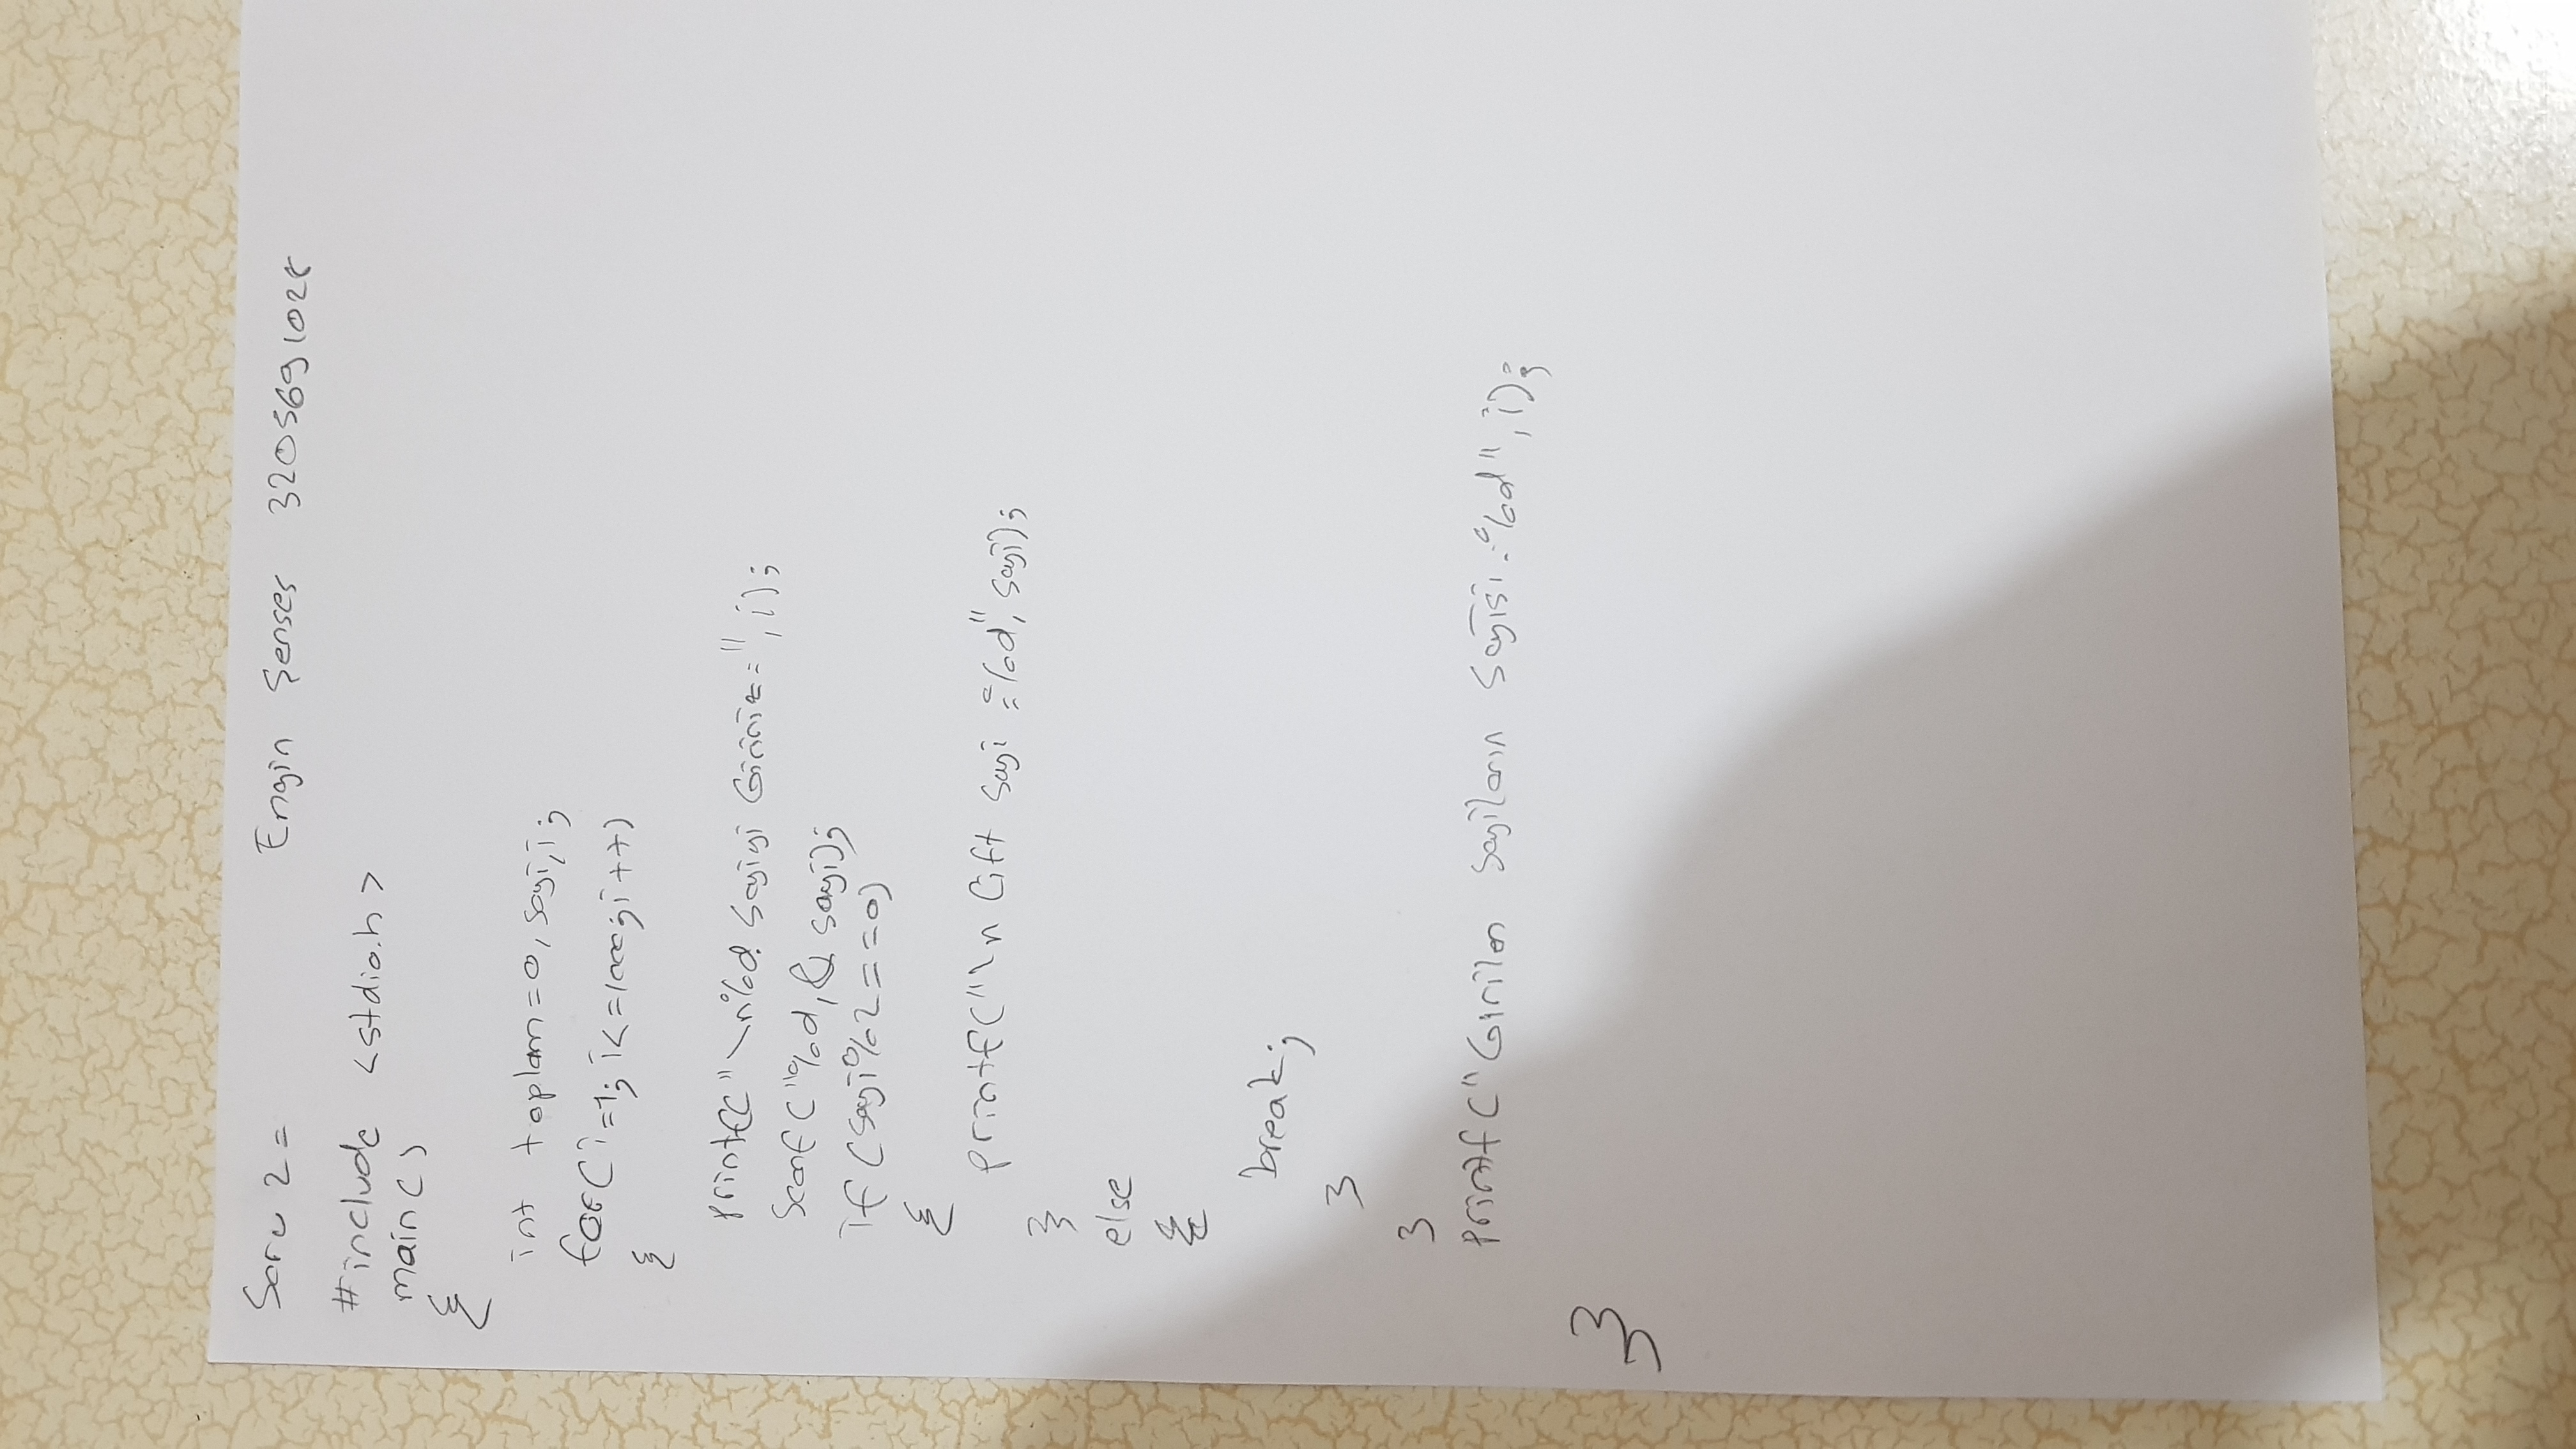 Soru 2 = Engin Şenses 3205691028
#include <stdio.h>
main()
{
int toplam=0, sayi, i;
for(i=1; i<=1000; i++)
{
printf("\n%d. Sayiyi Giriniz=", i);
Scanf("%d, & sayi);
if (sayi%2==0)
{
printf("\n Cift Sayi =%d", sayi);
}
else
{
break;
}
}
printf("Girilen Sayilarin Sayisi=%d", i);
}